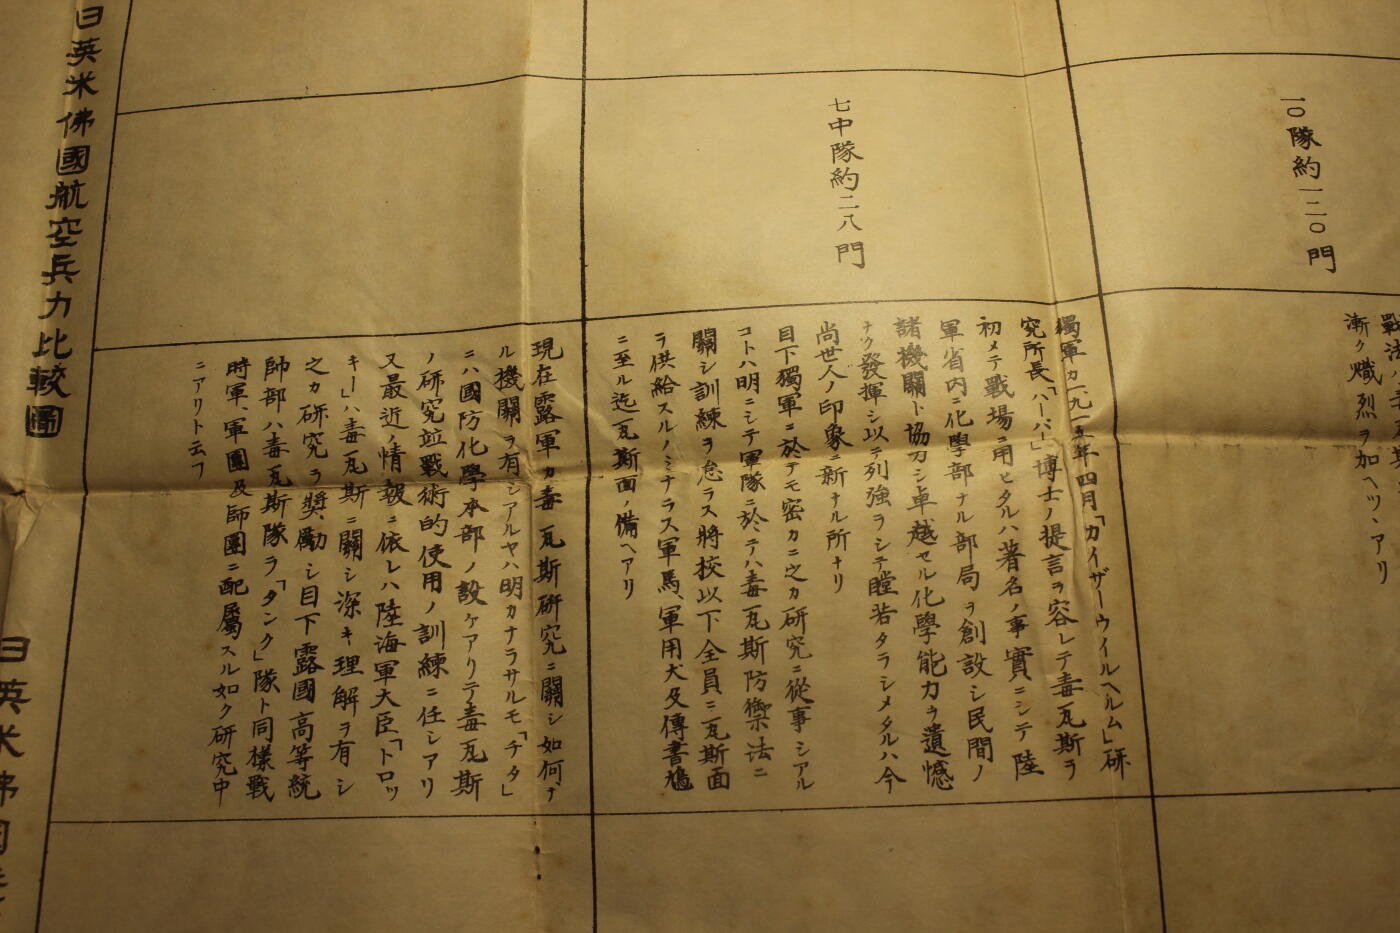 戰法ハ
漸ク熾烈ヲ加ヘツヽアリ
一〇隊約一二〇門
七中隊約二八門
獨軍カ一九一五年四月「カイザーウイルヘルム」研
究所長「ハーバー」博士ノ提言ヲ容レテ毒瓦斯ヲ
初メテ戰場ニ用ヒタルハ著名ノ事實ニシテ陸
軍省内ニ化學部ナル部局ヲ創設シ民間ノ
諸機關ト協力シ卓越セル化學能力ヲ遺憾
ナク發揮シ以テ列強ヲシテ瞠若タラシメタルハ今
尚世人ノ印象ニ新ナル所ナリ
目下獨軍ニ於テモ密カニ之カ研究ニ從事シアル
コトハ明ニシテ軍隊ニ於テハ毒瓦斯防禦法ニ
關シ訓練ヲ怠ラス將校以下全員ニ瓦斯面
ヲ供給スルノミナラス軍馬、軍用犬及傳書鳩
ニ至ル迄瓦斯面ノ備ヘアリ
現在露軍カ毒瓦斯研究ニ關シ如何ナ
ル機關ヲ有シアルヤハ明カナラサルモ「チタ」
ニハ國防化學本部ノ設ケアリテ毒瓦斯
ノ研究並戰術的使用ノ訓練ニ任シアリ
又最近ノ情報ニ依レハ陸海軍大臣「トロツ
キー」ハ毒瓦斯ニ關シ深キ理解ヲ有シ
之カ研究ヲ奬勵シ目下露國高等統
帥部ハ毒瓦斯隊ヲ「タンク」隊ト同樣戰
時軍、軍團及師團ニ配屬スル如ク研究中
ニアリト云フ
日英米佛國航空兵力比較圖
日英米佛國